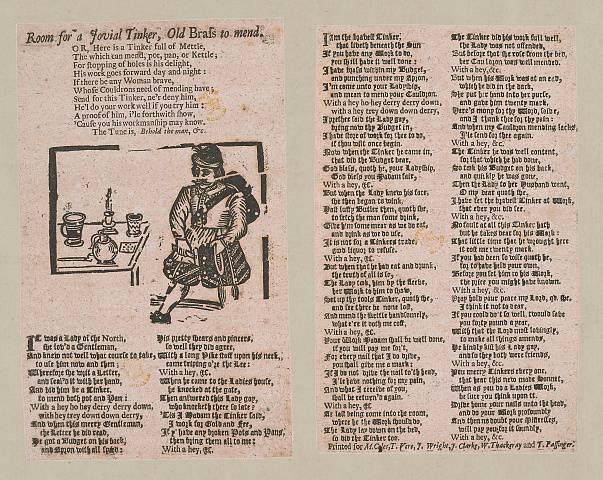 Room for a Jovial Tinker, Old Brass to mend.
OR, Here is a Tinker full of Mettle,
The which can mend, pot, pan, or Kettle;
For stopping of holes is his delight,
His work goes forward day and night:
If there be any Woman brave,
Whose Couldrons need of mending have,
Send for this Tinker, ne'r deny him,
He'l do your work well if you try him:
A proof of him, i'le forthwith show,
'Cause you his workmanship may know.
The Tune is, Behold the man, &c.
IT was a Lady of the North,
she lov'd a Gentleman,
And knew not well what course to take,
to use him now and then;
Wherefore she writ a Letter,
and seal'd it with her hand,
And bid him be a Tinker,
to mend both pot and Pan:
With a hey ho hey derry derry down,
with hey trey down down derry,
And when this merry Gentleman,
the Letter he did read,
He got a Budget on his back,
and Apron with all speed:
His pretty shears and pincers,
so well they did agree,
With a long Pike staff upon his neck,
came tripping o're the Lee:
With a hey, &c.
When he came to the Ladies house,
he knocked at the gate,
Then answered this Lady gay,
who knocketh there so late:
'Tis I Madam the Tinker said,
I work for Gold and Fee,
If y'have any broken Pots and Pans,
then bring them all to me:
With a hey, &c.
I am the bravest Tinker,
that liveth beneath the Sun
If you have any work to do,
you shall have it well done:
I have brass within my Budget,
and punching under my Apron,
I'm come unto your Ladyship,
and mean to mend your Cauldron.
With a hey ho hey derry derry down,
with a hey trey down down derry,
I prethee said the Lady gay,
bring now thy Budget in,
I have store of work for thee to do,
if thou wilt once begin.
Now when the Tinker he came in,
that did the Budget bear,
God bless, quoth he, your Ladyship,
God bless you Madam fair,
With a hey, &c.
But when the Lady knew his face,
she then began to wink,
Hast lusty Butler then, quoth she,
to fetch the man some drink,
Give him some meat as we do eat,
and drink as we do use,
It is not for a Tinkers trade,
good liquor to refuse.
With a hey, &c.
But when that he had eat and drunk,
the truth of all is so,
The Lady took him by the sleeve,
her Work to him to show,
Set up thy tools Tinker, quoth she,
and see there be none lost,
And mend the Kettle handsomely,
what e're it doth me cost,
With a hey, &c.
Your Work Madam shall be well done,
if you will pay me for't,
For every nail that I do drive,
you shall give me a mark:
If I do not drive the nail to'th head,
I'le have nothing for my pain,
And what I receive of you,
shall be return'd again.
With a hey, &c.
At last being come into the room,
where he the Work should do,
The Lady lay down on the bed,
so did the Tinker too.
The Tinker did his work full well,
the Lady was not offended,
But before that she rose from the bed,
her Cauldron was well mended.
With a hey, &c.
But when his Work was at an end,
which he did in the dark,
She put her hand into her purse,
and gave him twenty mark.
Here's mony for thy Work, said she,
and I thank thee for thy pain:
And when my Cauldron mending lacks,
I'le send for thee again.
With a hey, &c.
The Tinker he was well content,
for that which he had done,
So took his Budget on his back,
and quickly he was gone,
Then the Lady to her Husband went,
O my dear quoth she,
I have set the bravest Tinker at Work,
that ever you did see.
With a hey, &c.
No fault at all this Tinker hath
but he takes dear for his Work:
That little time that he wrought here
it cost me twenty mark.
If you had been so wise quoth he,
for to have held your own,
Before you set him to his Work,
the price you might have known.
With a hey, &c.
Pray hold your peace my Lord, qd. she,
I think it not to dear.
If you could do't so well, 'twould save
you forty pound a year,
With that the Lord most lovingly,
to make all things amends,
He kindly kist his Lady gay,
and so they both were friends,
With a hey, &c.
You merry Tinkers every one,
that hear this new made Sonnet,
When as you do a Ladies Work,
be sure you think upon it.
Drive home your nails unto the head,
and do your Work profoundly
And then no doubt your Mistresses,
will pay you for it soundly,
With a hey, &c.
Printed for M. Coles, T. Vere, J. Wright, J. Clarke, W. Thackeray and T. Passinger.